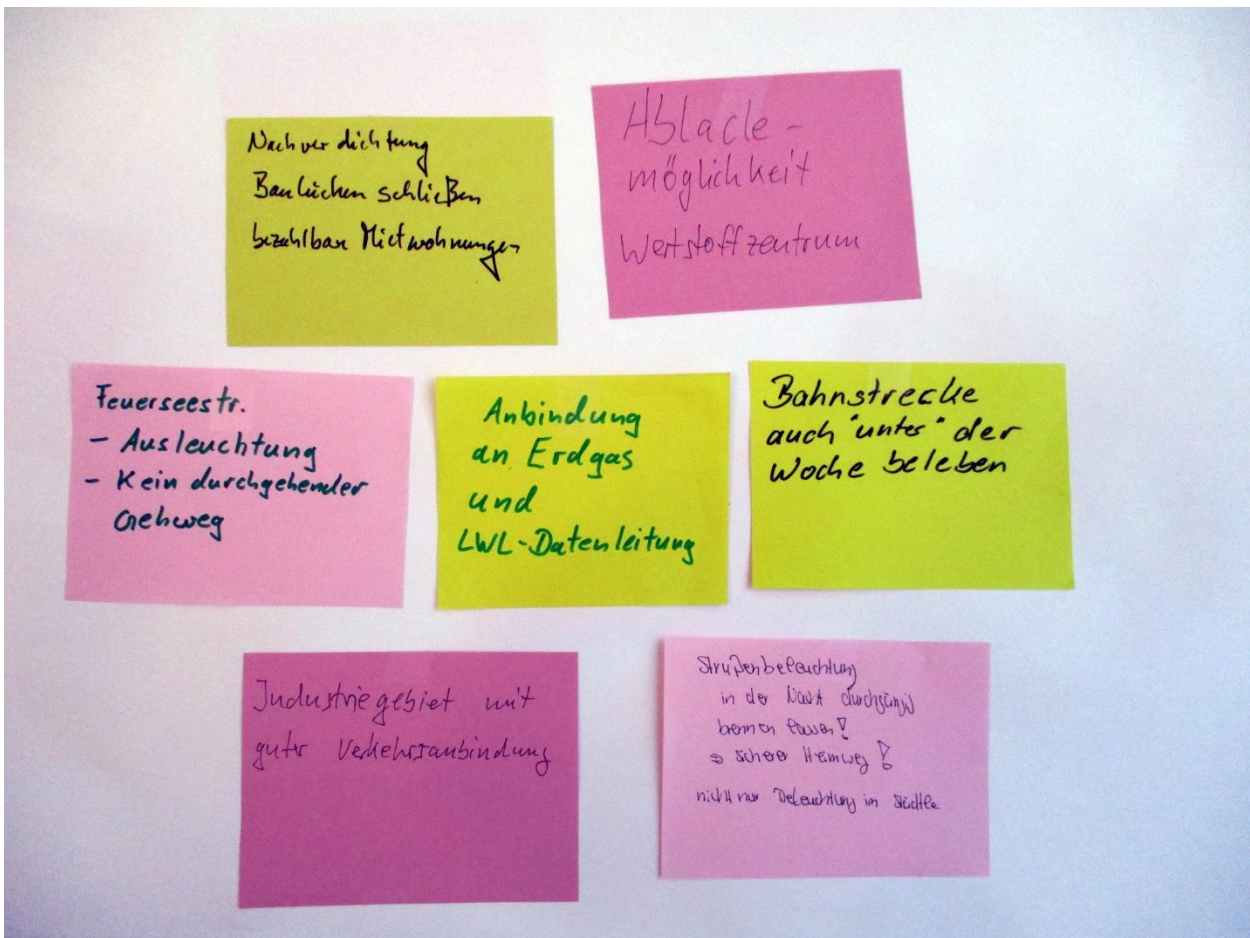 Nachverdichtung
Baulücken schließen
bezahlbare Mietwohnungen
Ablade-
möglichkeit
Wertstoffzentrum
Feuerseestr.
- Ausleuchtung
- Kein durchgehender
Gehweg
Anbindung
an Erdgas
und
LWL-Datenleitung
Bahnstrecke
auch "unter" der
Woche beleben
Industriegebiet mit
guter Verkehrsanbindung
Straßenbeleuchtung
in der Nacht durchgängig
brennen lassen!
⇒ sicherer Heimweg!
nicht nur Beleuchtung im Städtle